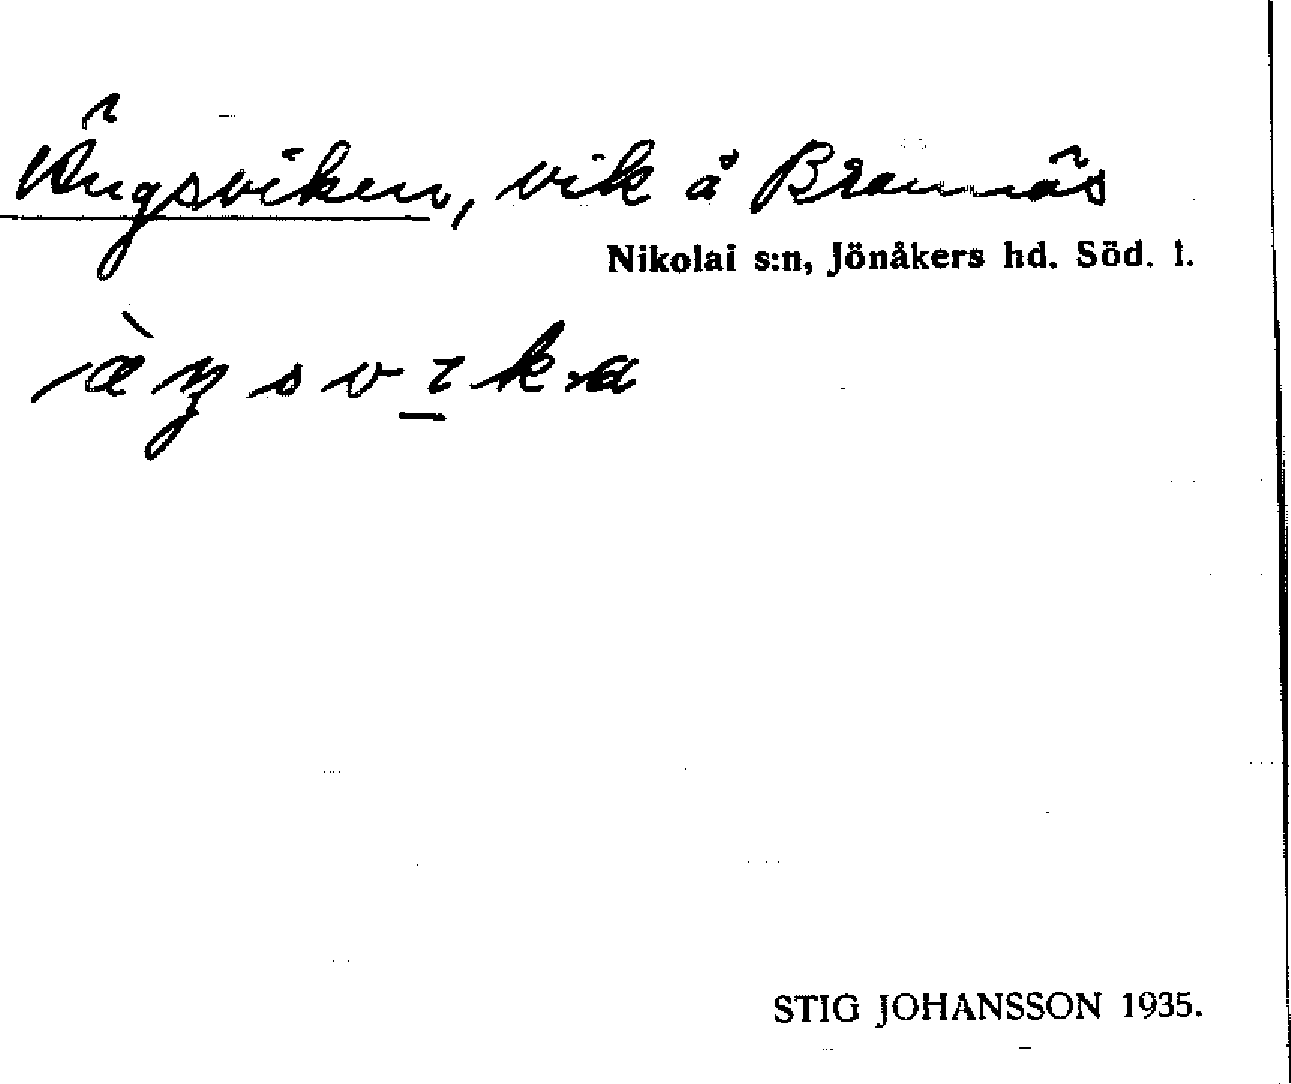 Ängsviken, vik å Brannäs
Nikolai s:n, Jönåkers hd. Söd. l.
ä̀ŋsvika
STIG JOHANSSON 1935.